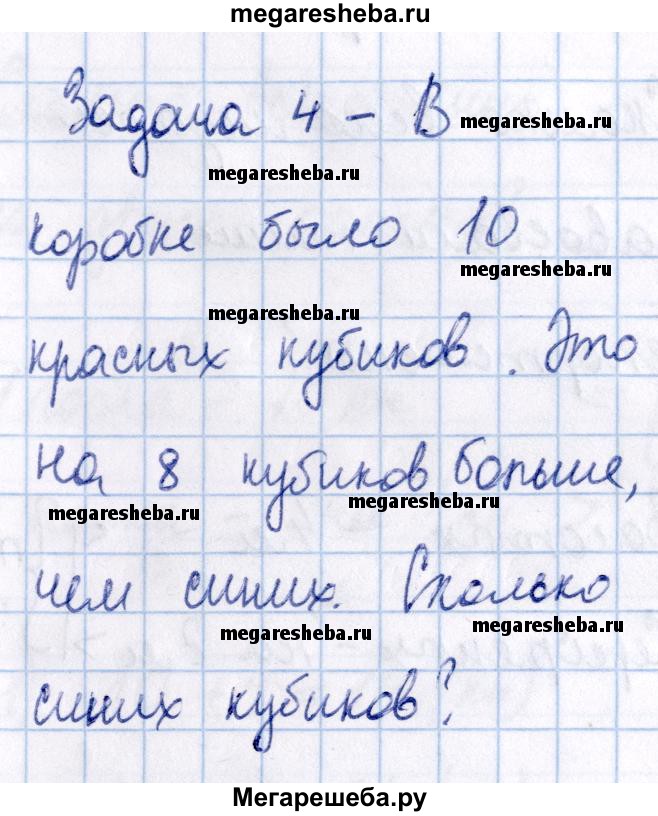 megaresheba.ru
Задача 4 – В
megaresheba.ru
megaresheba.ru
коробке было 10
megaresheba.ru
megaresheba.ru
красных кубиков. Это
megaresheba.ru
на 8 кубиков больше,
megaresheba.ru
megaresheba.ru
чем синих. Сколько
megaresheba.ru
megaresheba.ru
синих кубиков?
Мегарешеба.ру